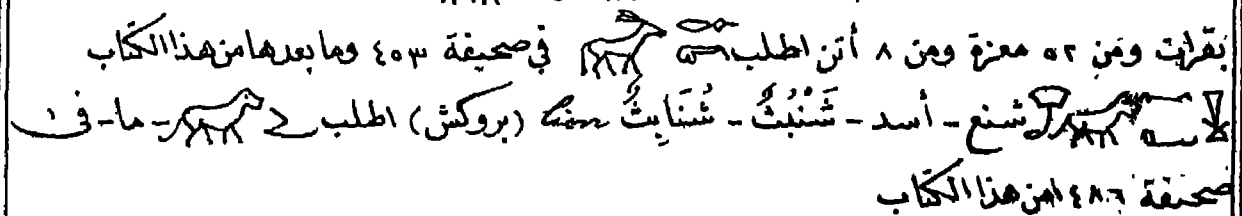 بقرات ومن ٥٢ معزة ومن ٨ أتن اطلب في صحيفة ٤٥٣ وما بعدها من هذا الكتاب
شنع - أسد - شَنْبُثٌ - شُنَابِثٌ (بروكش) اطلب - ما - في
صحيفة ٤٨٦ من هذا الكتاب